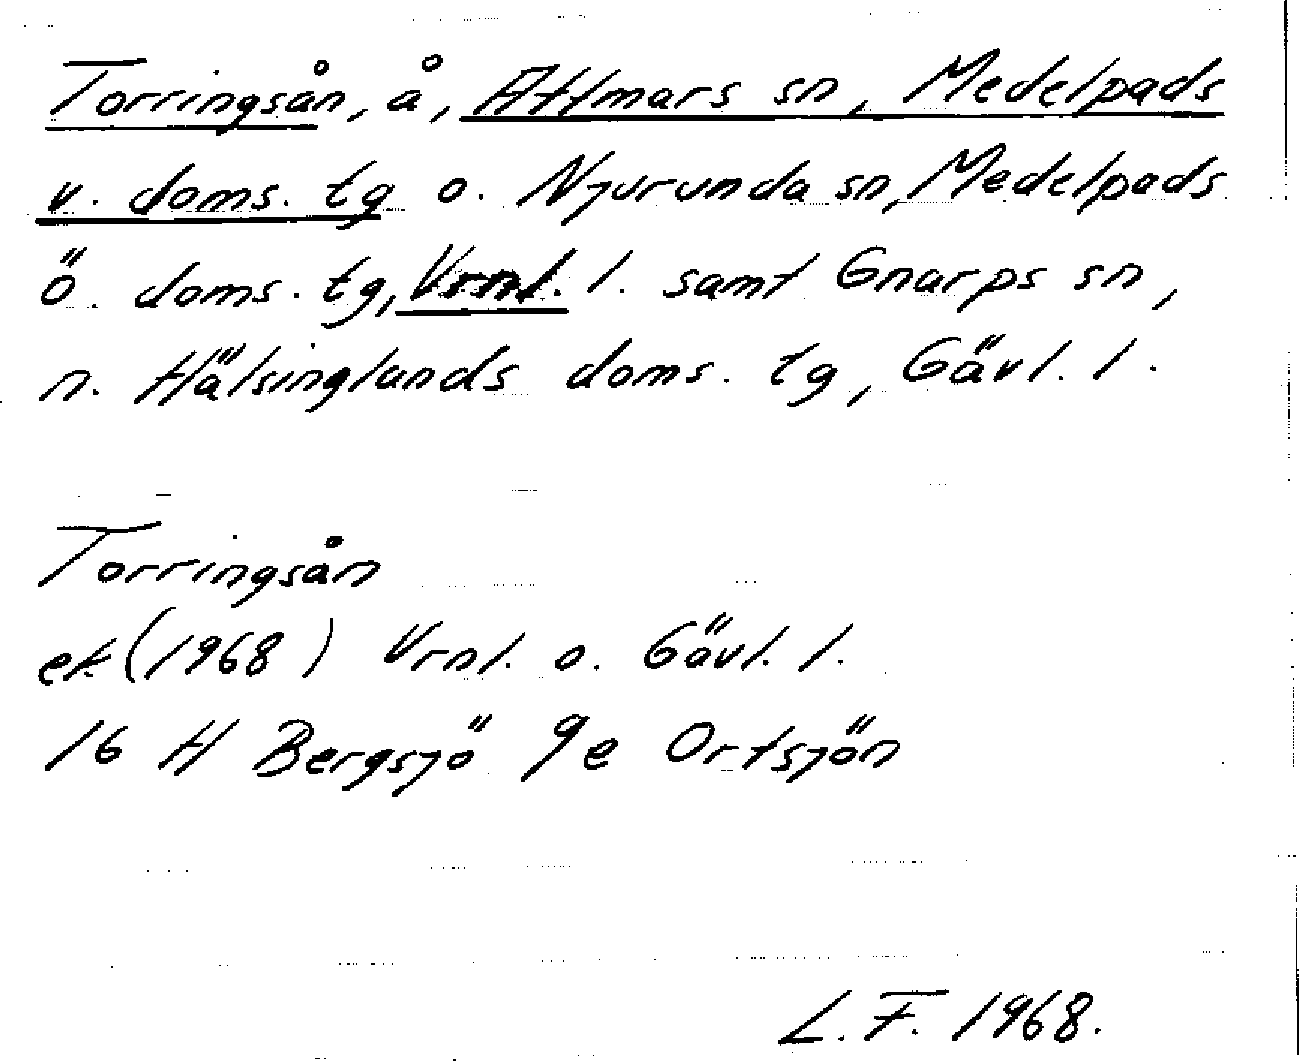 Torringsån, å, Attmars sn, Medelpads
v. doms. tg o. Njurunda sn, Medelpads
ö. doms. tg, Vrnl. l. samt Gnarps sn,
n. Hälsinglands doms. tg, Gävl. l.
Torringsån
ek (1968) Vrnl. o. Gävl. l.
16 H Bergsjö 9e Ortsjön
L. F. 1968.